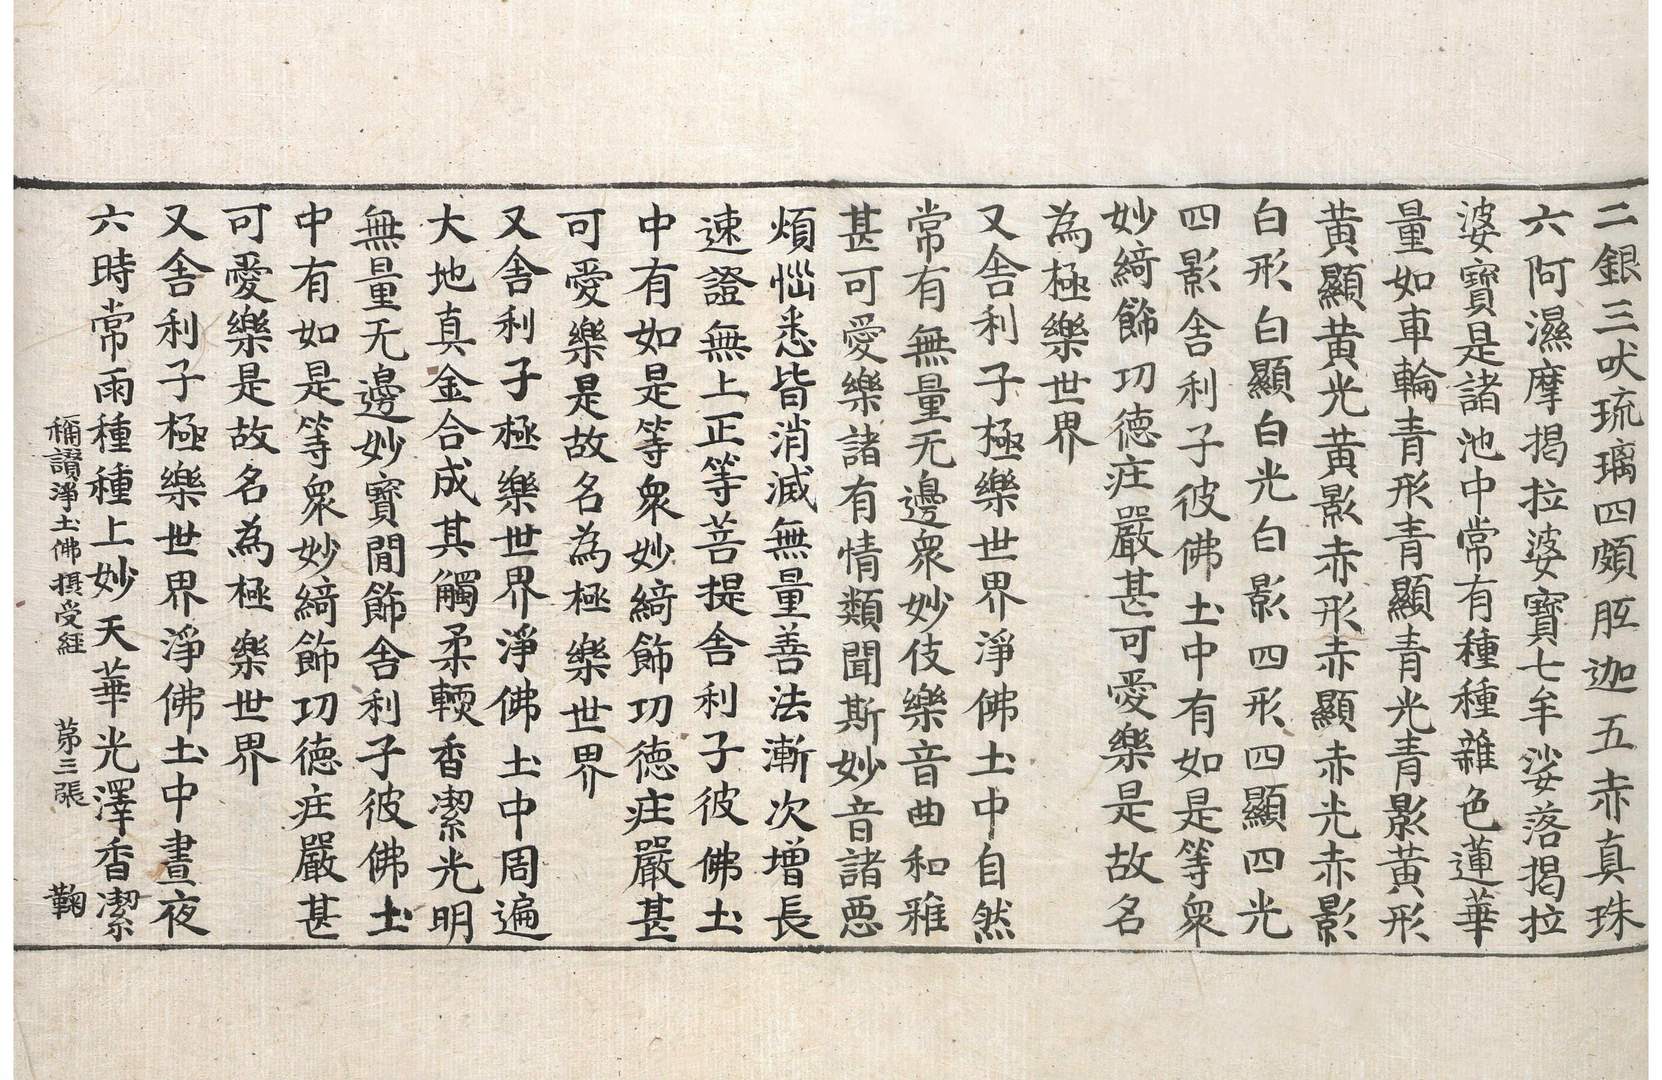 二銀三吠琉璃四頗胝迦五赤真珠
六阿濕摩揭拉婆寶七牟娑落揭拉
婆寶是諸池中常有種種雜色蓮華
量如車輪青形青顯青光青影黃形
黃顯黃光黃影赤形赤顯赤光赤影
白形白顯白光白影四形四顯四光
四影舍利子彼佛土中有如是等衆
妙綺飾功德莊嚴甚可愛樂是故名
為極樂世界
又舍利子極樂世界淨佛土中自然
常有無量无邊衆妙伎樂音曲和雅
甚可愛樂諸有情類聞斯妙音諸惡
煩惱悉皆消滅無量善法漸次增長
速證無上正等菩提舍利子彼佛土
中有如是等衆妙綺飾功德莊嚴甚
可愛樂是故名為極樂世界
又舍利子極樂世界淨佛土中周遍
大地真金合成其觸柔輭香潔光明
無量无邊妙寶閒飾舍利子彼佛土
中有如是等衆妙綺飾功德莊嚴甚
可愛樂是故名為極樂世界
又舍利子極樂世界淨佛土中晝夜
六時常雨種種上妙天華光澤香潔
稱讚淨土佛攝受經 苐三張 鞠